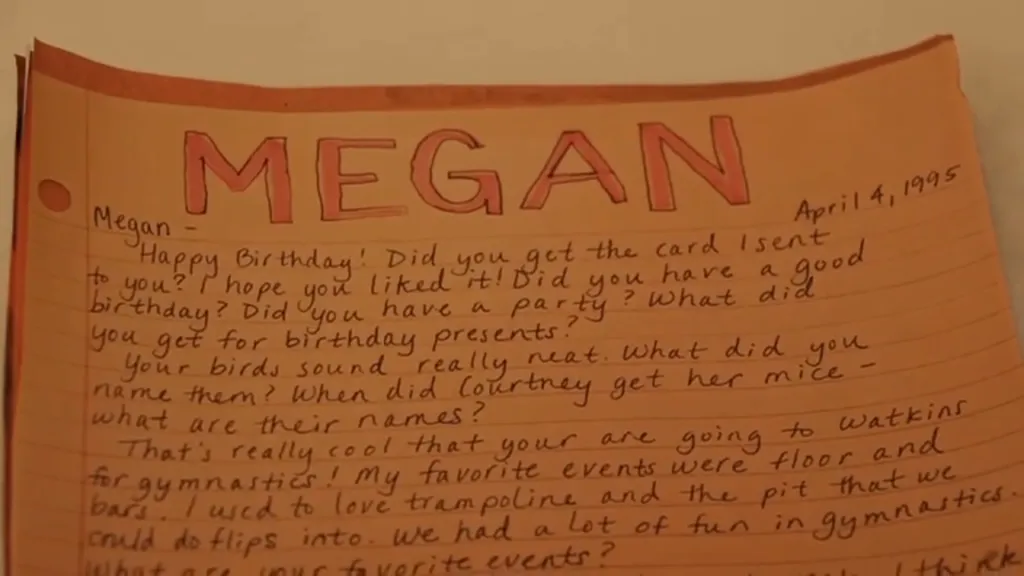 MEGAN
April 4, 1995
Megan -
Happy Birthday! Did you get the card I sent
to you? I hope you liked it! Did you have a good
birthday? Did you have a party? What did
you get for birthday presents?
Your birds sound really neat. What did you
name them? When did Courtney get her mice -
what are their names?
That's really cool that your are going to Watkins
for gymnastics! My favorite events were floor and
bars. I used to love trampoline and the pit that we
could do flips into. We had a lot of fun in gymnastics.
What are your favorite events?
I think